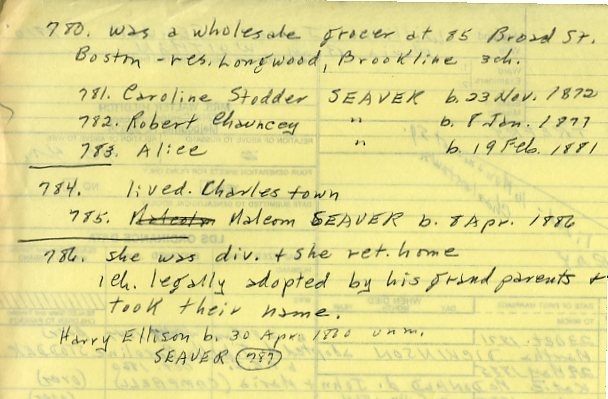 780. was a wholesale grocer at 85 Broad St.
Boston - res. Longwood, Brookline 3ch.
781. Caroline Stodder SEAVER b. 23 Nov. 1872
782. Robert Chauncey " b. 8 Jan. 1877
783. Alice " b. 19 Feb. 1881
784. lived. Charlestown
785. Malcolm Malcom SEAVER b. 8 Apr. 1886
786. she was div. + she ret. home
1 ch. legally adopted by his grand parents +
took their name.
Harry Ellison b. 30 Apr. 1880 unm.
SEAVER 787